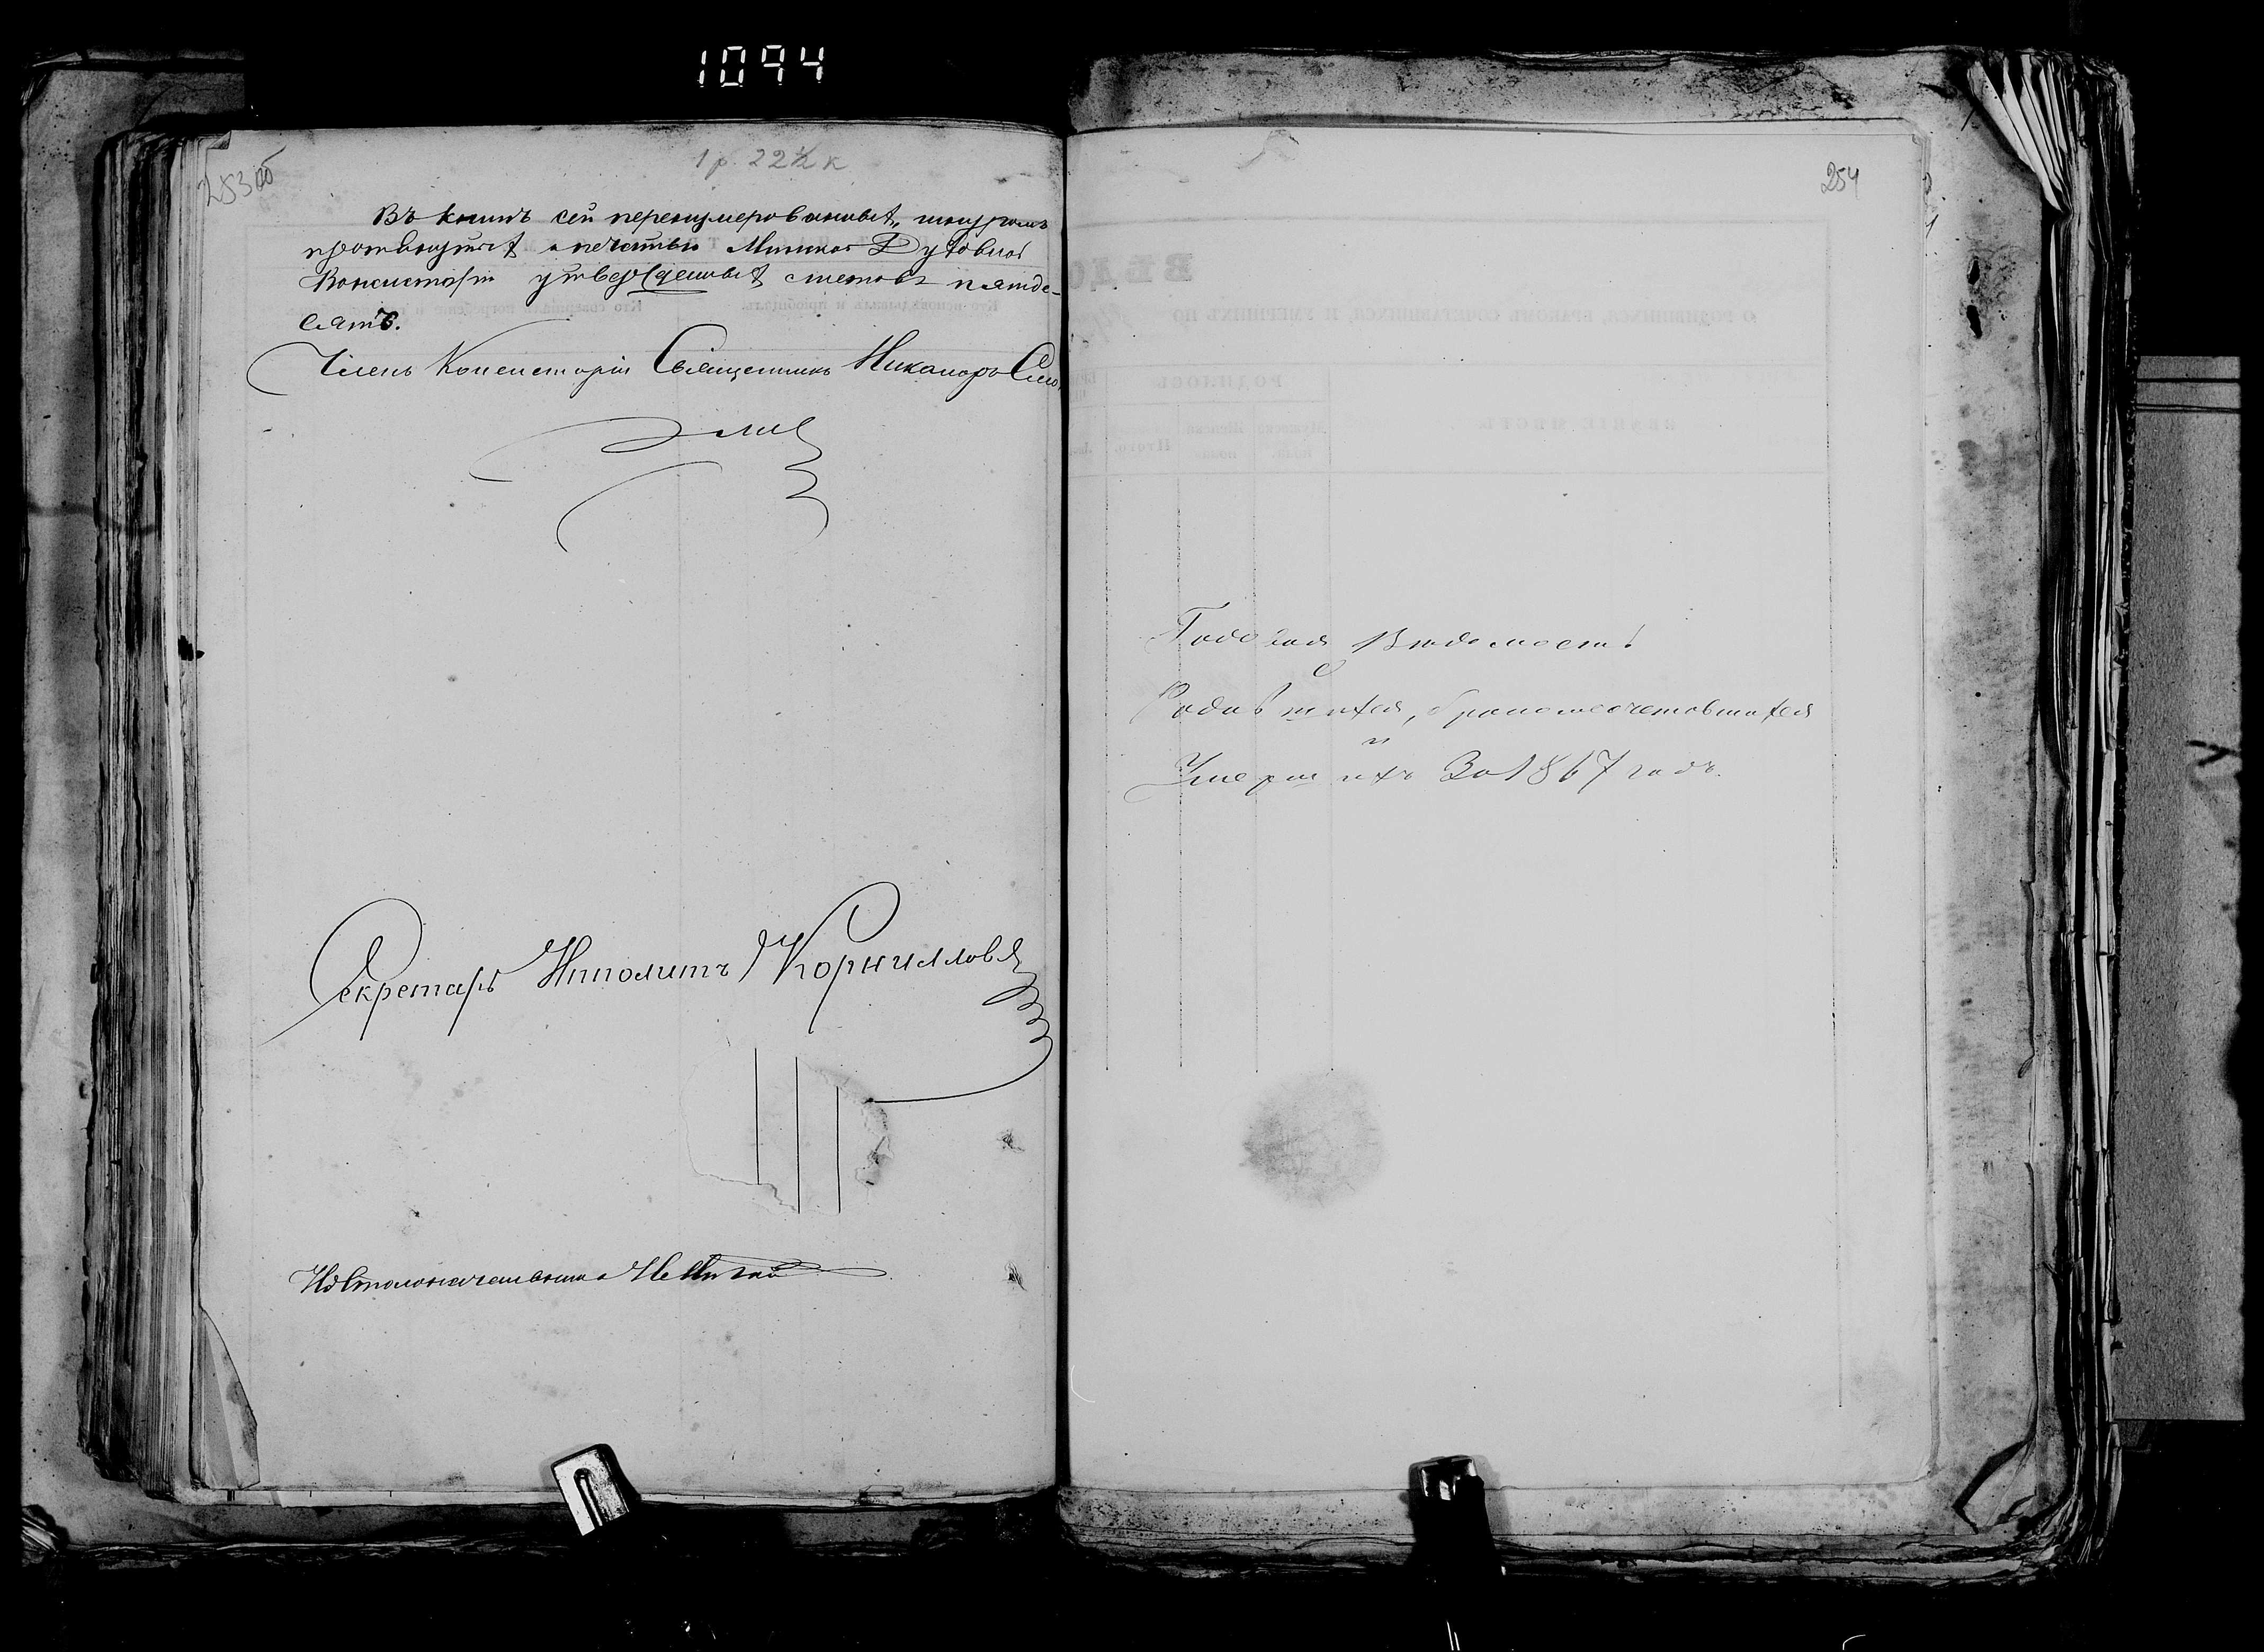 1094
253 об
1 р. 22½ к
Въ книгѣ сей перенумерованныхъ, шнуромъ
протянутыхъ и печатью Минской Духовной
Консисторіи утвержденныхъ листовъ пятьде-
сятъ.
Членъ Консисторіи Священникъ Никаноръ
Секретарь Ипполитъ Корниловъ
254
Годовая Вѣдомость
о
Родившихся, бракосочетовшихся
и
Умершихъ За 1867 годъ.